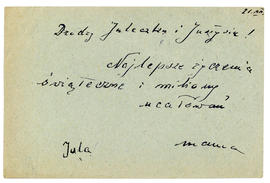 21.XII
Drodzy Juleczku i Justysiu!
Najlepsze życzenia
świąteczne i miliony
ucałowań
mama
Jula